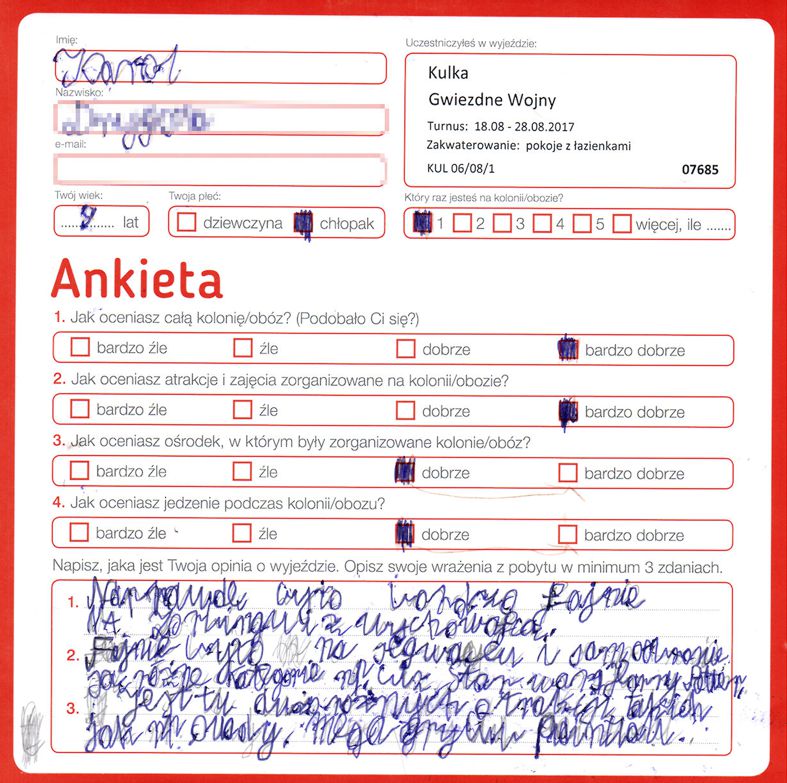 Imię:
Karol
Uczestniczyłeś w wyjeździe:
Kulka
Gwiezdne Wojny
Turnus: 18.08 - 28.08.2017
Zakwaterowanie: pokoje z łazienkami
KUL 06/08/1 07685
Nazwisko:
e-mail:
Twój wiek:
9 lat
Twoja płeć:
dziewczyna chłopak
Który raz jesteś na kolonii/obozie?
1 2 3 4 5 więcej, ile .......
Ankieta
1. Jak oceniasz całą kolonię/obóz? (Podobało Ci się?)
bardzo źle źle dobrze bardzo dobrze
2. Jak oceniasz atrakcje i zajęcia zorganizowane na kolonii/obozie?
bardzo źle źle dobrze bardzo dobrze
3. Jak oceniasz ośrodek, w którym były zorganizowane kolonie/obóz?
bardzo źle źle dobrze bardzo dobrze
4. Jak oceniasz jedzenie podczas kolonii/obozu?
bardzo źle źle dobrze bardzo dobrze
Napisz, jaka jest Twoja opinia o wyjeździe. Opisz swoje wrażenia z pobytu w minimum 3 zdaniach.
1. Naprawde było bardzo Fajnie
z wychowawcą.
2. Fajnie było na segwayu i
jak różne star wars
3. jest tu dużo różnych atrakcji takich
jak Mega